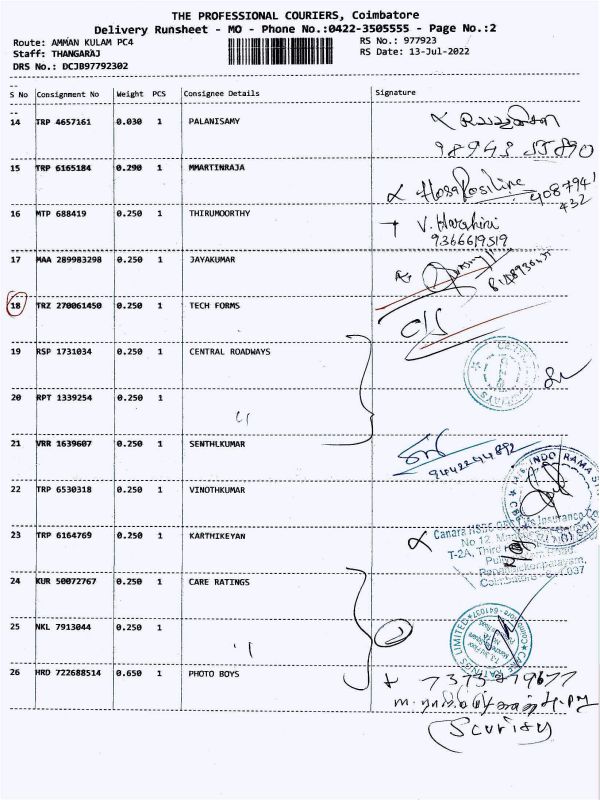 THE PROFESSIONAL COURIERS, Coimbatore
Delivery Runsheet - MO - Phone No.:0422-3505555 - Page No.:2
Route: AMMAN KULAM PC4
RS No.: 977923
Staff: THANGARAJ
RS Date: 13-Jul-2022
DRS No.: DCJB97792302
--
S No Consignment No Weight PCS Consignee Details Signature
--
14 TRP 4657161 0.030 1 PALANISAMY
98943 55890
15 TRP 6165184 0.290 1 MMARTINRAJA
408794
432
16 MTP 688419 0.250 1 THIRUMOORTHY V. Harshini
9366619519
17 MAA 289983298 0.250 1 JAYAKUMAR
18 TRZ 270061450 0.250 1 TECH FORMS
19 RSP 1731034 0.250 1 CENTRAL ROADWAYS
20 RPT 1339254 0.250 1
21 VRR 1639607 0.250 1 SENTHLKUMAR
9442244892
22 TRP 6530318 0.250 1 VINOTHKUMAR
INDO RAMA
23 TRP 6164769 0.250 1 KARTHIKEYAN
Canara HSBC Insurance
No 12,
T-2A, Third
Coimbatore
24 KUR 50072767 0.250 1 CARE RATINGS
25 NKL 7913044 0.250 1
RATINGS LIMITED
26 HRD 722688514 0.650 1 PHOTO BOYS
Scurity